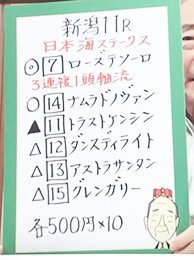 新潟11R
日本海ステークス
◎7 ローズテソーロ
3連複1頭軸流
○14 ナムラドノヴァン
▲11 トラストケンシン
△12 ダンスディライト
△13 アストラサンタン
△15 グレンガリー
各500円×10